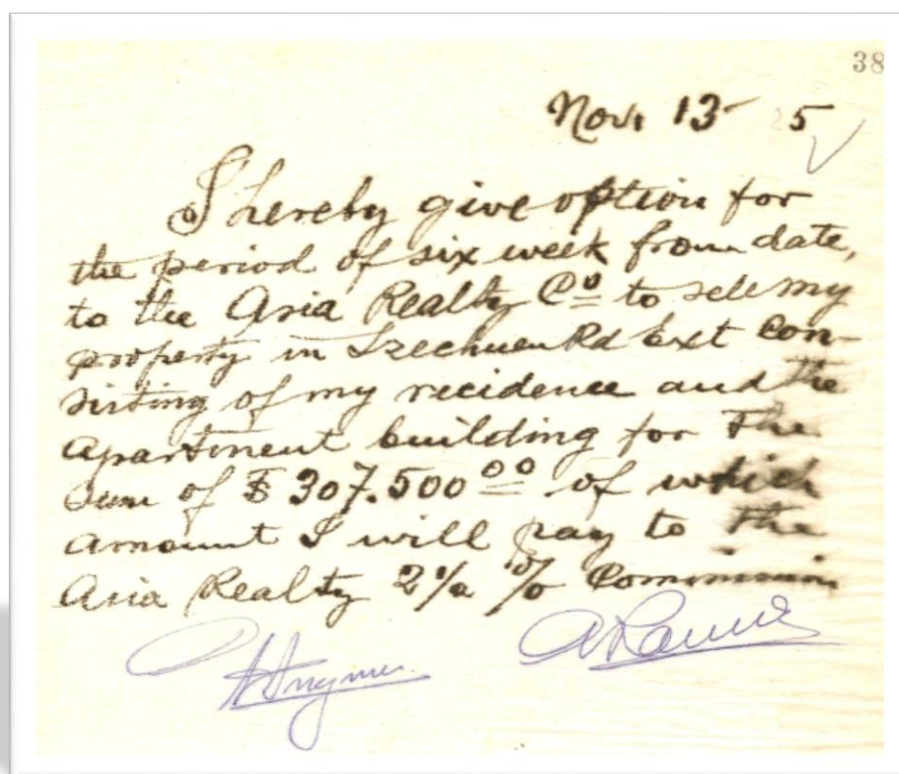 38
Nov. 13 25
I hereby give option for
the period of six week from date,
to the Asia Realty Co to sell my
property in Szechuen Rd Ext Con-
sisting of my recidence and the
apartment building for the
sum of $ 307.500 00 of which
amount I will pay to the
Asia Realty 2% % Commission